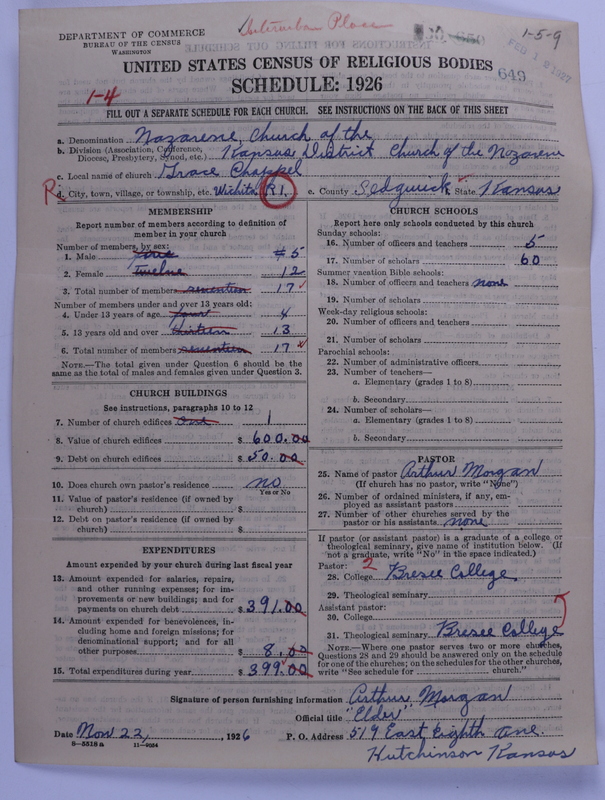 DEPARTMENT OF COMMERCE
BUREAU OF THE CENSUS
WASHINGTON
1-5-9
FEB 12 1927
UNITED STATES CENSUS OF RELIGIOUS BODIES
649
SCHEDULE: 1926
1-4
FILL OUT A SEPARATE SCHEDULE FOR EACH CHURCH. SEE INSTRUCTIONS ON THE BACK OF THIS SHEET
a. Denomination Nazarene, Church of the
b. Division (Association, Conference, Diocese, Presbytery, Synod, etc.) Kansas District Church of the Nazarene
c. Local name of church Grace Chappel
R d. City, town, village, or township, etc. Wichita R1. e. County Sedgwick f. State Kansas
MEMBERSHIP
Report number of members according to definition of member in your church
Number of members, by sex:
1. Male five #5
2. Female Twelve 12
3. Total number of members seventeen 17
Number of members under and over 13 years old:
4. Under 13 years of age four 4
5. 13 years old and over thirteen 13
6. Total number of members seventeen 17
NOTE.—The total given under Question 6 should be the same as the total of males and females given under Question 3.
CHURCH BUILDINGS
See instructions, paragraphs 10 to 12
7. Number of church edifices one 1
8. Value of church edifices $ 600.00
9. Debt on church edifices $ 50.00
10. Does church own pastor's residence? no
Yes or No
11. Value of pastor's residence (if owned by church) $
12. Debt on pastor's residence (if owned by church) $
EXPENDITURES
Amount expended by your church during last fiscal year
13. Amount expended for salaries, repairs, and other running expenses; for improvements or new buildings; and for payments on church debt $ 391.00
14. Amount expended for benevolences, including home and foreign missions; for denominational support; and for all other purposes $ 8.00
15. Total expenditures during year $ 399.00
CHURCH SCHOOLS
Report here only schools conducted by this church
Sunday schools:
16. Number of officers and teachers 5
17. Number of scholars 60
Summer vacation Bible schools:
18. Number of officers and teachers none
19. Number of scholars
Week-day religious schools:
20. Number of officers and teachers
21. Number of scholars
Parochial schools:
22. Number of administrative officers
23. Number of teachers—
a. Elementary (grades 1 to 8)
b. Secondary
24. Number of scholars—
a. Elementary (grades 1 to 8)
b. Secondary
PASTOR
25. Name of pastor Arthur Morgan
(If church has no pastor, write "None")
26. Number of ordained ministers, if any, employed as assistant pastors
27. Number of other churches served by the pastor or his assistants none
If pastor (or assistant pastor) is a graduate of a college or theological seminary, give name of institution below. (If not a graduate, write "No" in the space indicated.)
Pastor: 2
28. College Bresee College
29. Theological seminary
Assistant pastor:
30. College
31. Theological seminary Bresee College
NOTE.—Where one pastor serves two or more churches, Questions 28 and 29 should be answered only on the schedule for one of the churches; on the schedules for the other churches, write "See schedule for church."
Signature of person furnishing information Arthur Morgan
Official title "Elder"
Date Nov 22, 1926 P. O. Address 519 East Eighth Ave.
8-5518 a 11-9024
Hutchinson Kansas